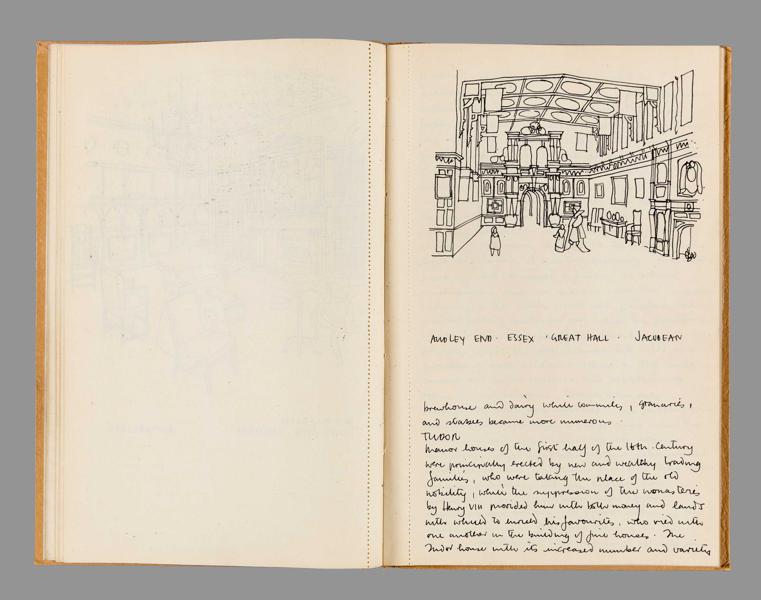 AUDLEY END · ESSEX · GREAT HALL · JACOBEAN
brewhouse and dairy while, granaries,
and stables became more numerous.
TUDOR
Manor houses of the first half of the 16th. Century
were principally erected by new and wealthy trading
families, who were taking the place of the old
nobility, while the suppression of the monasteries
by Henry VIII provided him with both money and lands
with which to enrich his favourites, who vied with
one another in the building of fine houses. The
Tudor house with its increased number and variety